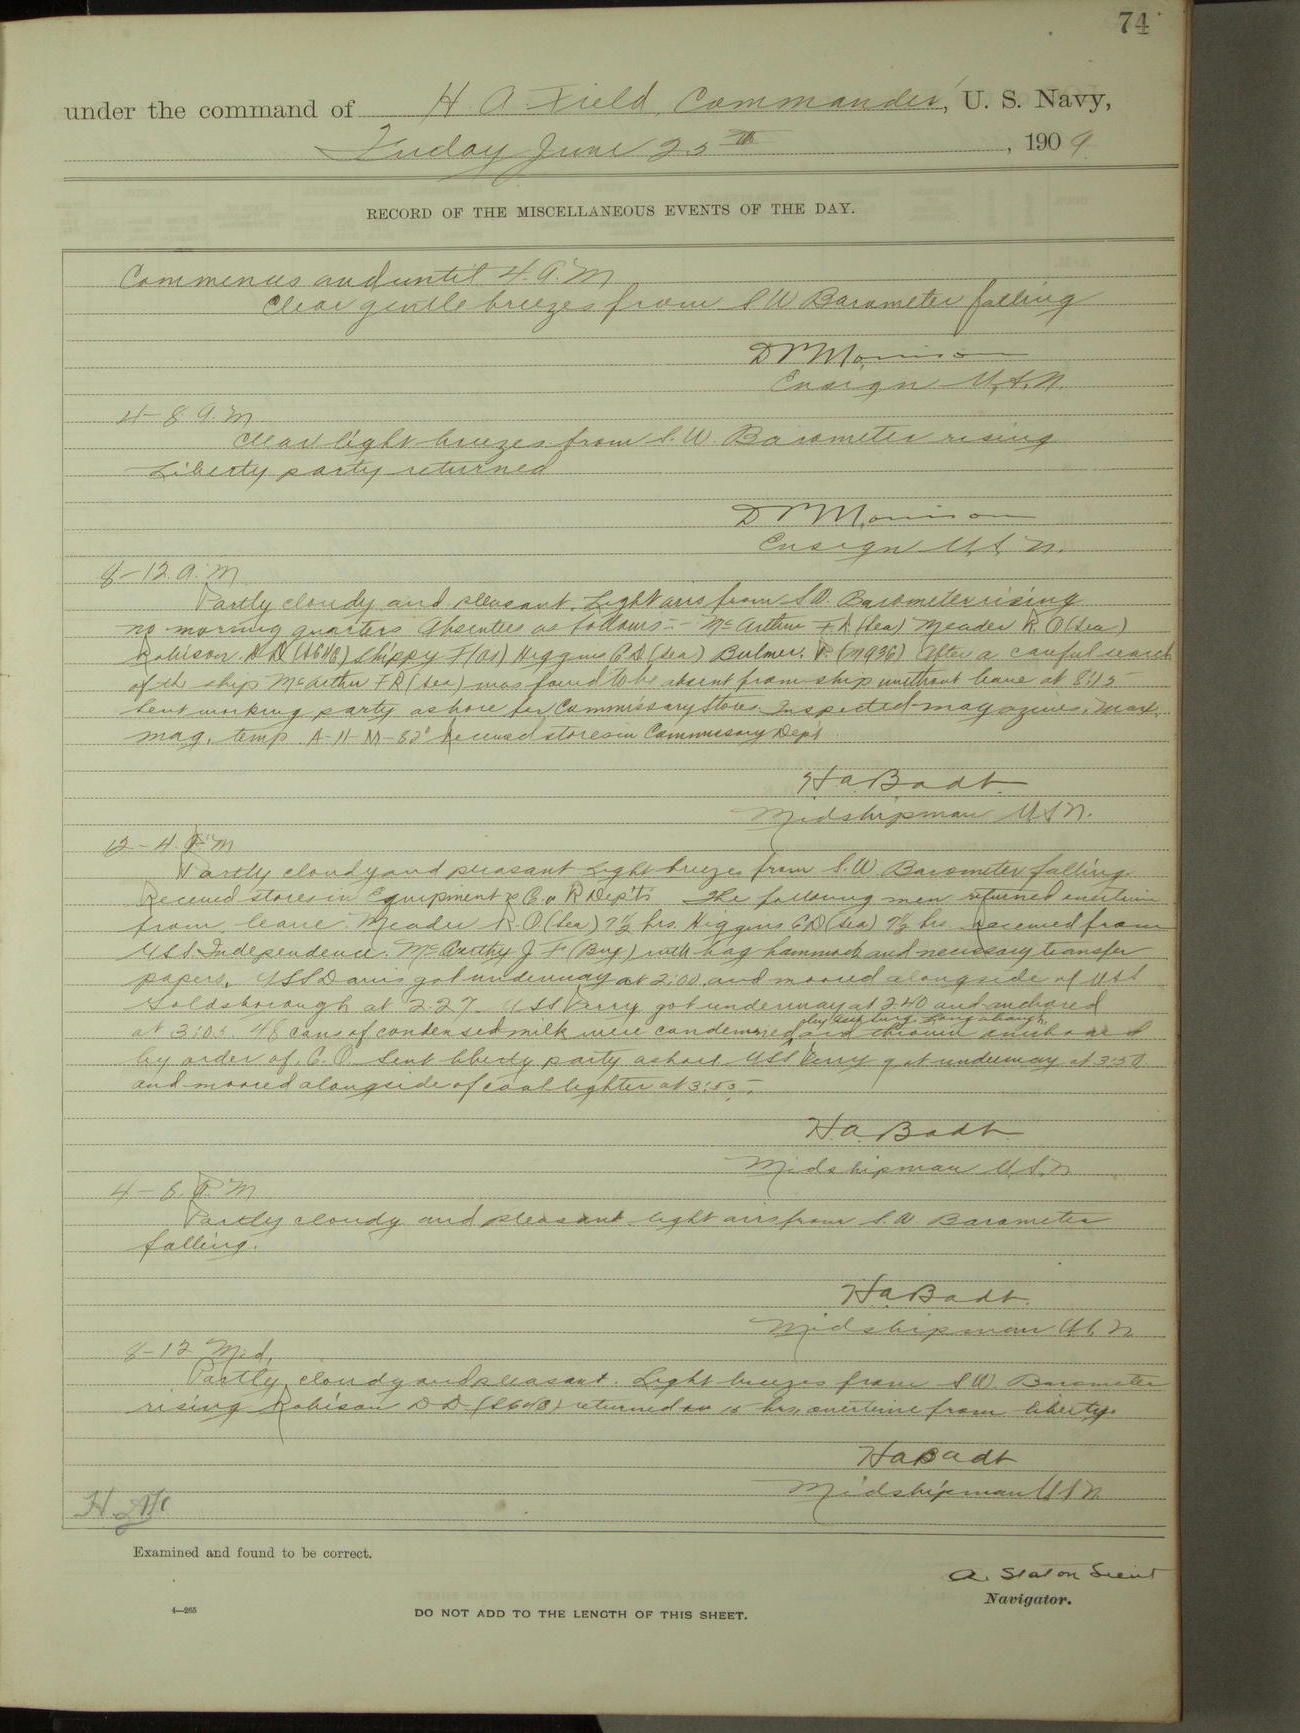 74
under the command of H. A. Field, Commander, U. S. Navy,
Friday June 25th, 1909
RECORD OF THE MISCELLANEOUS EVENTS OF THE DAY.
Commences and until 4. A.M
Clear gentle breezes from S W Barometer falling
Ensign U.S.N.
4-8 A.M
Clear light breezes from S.W. Barometer rising
Liberty party returned
Ensign U.S.N.
8-12. A.M
Partly cloudy and pleasant. Light airs from S.W. Barometer rising
no morning quarters Absentees as follows:- McArthur F R (Sea) Meader R. O (Sea)
Robison D D (SC4C) Shippy F (OS) Higgins C D (Sea) Bulmer. R. (M93C) After a careful search
of the ship McArthur F R (Sea) was found to be absent from ship without leave at 8:15
Sent working party ashore for Commissary Stores. Inspected magazines. Max.
mag. temp. A-11-M-82° Received stores in Commissary Dept
H. a. Badt.
Midshipman U S N.
12-4. P.M
Partly cloudy and pleasant Light breezes from S.W. Barometer falling.
Received stores in Equipment & C. & R Dep'ts The following men returned overtime
from leave Meader R O (Sea) 7½ hrs. Higgins C D (Sea) 7½ hrs. Received from
U.S.S. Independence. McCarthy J F (Bux) with bag hammock and necessary transfer
papers. USS Davis got underway at 2:00, and moored alongside of USS
Goldsborough at 2.27. USS Perry got underway at 2.40 and anchored
at 3:05. 48 cans of condensed milk were condemned by and thrown overboard
by order of C.O. Sent liberty party ashore USS Perry got underway at 3:50
and moored alongside of coal lighter at 3:55.
H. a. Badt
Midshipman U.S.N
4-8. P.M
Partly cloudy and pleasant light airs from S.W Barometer
falling.
H. a. Badt.
Midshipman U.S.N
8-12 Mid.
Partly cloudy and pleasant. Light breezes from S W. Barometer
rising Robison D D (SC4C) returned on 15 hrs. overtime from liberty.
H a Badt
Midshipman U S N
Examined and found to be correct.
A. Staton
Navigator.
4—265
DO NOT ADD TO THE LENGTH OF THIS SHEET.